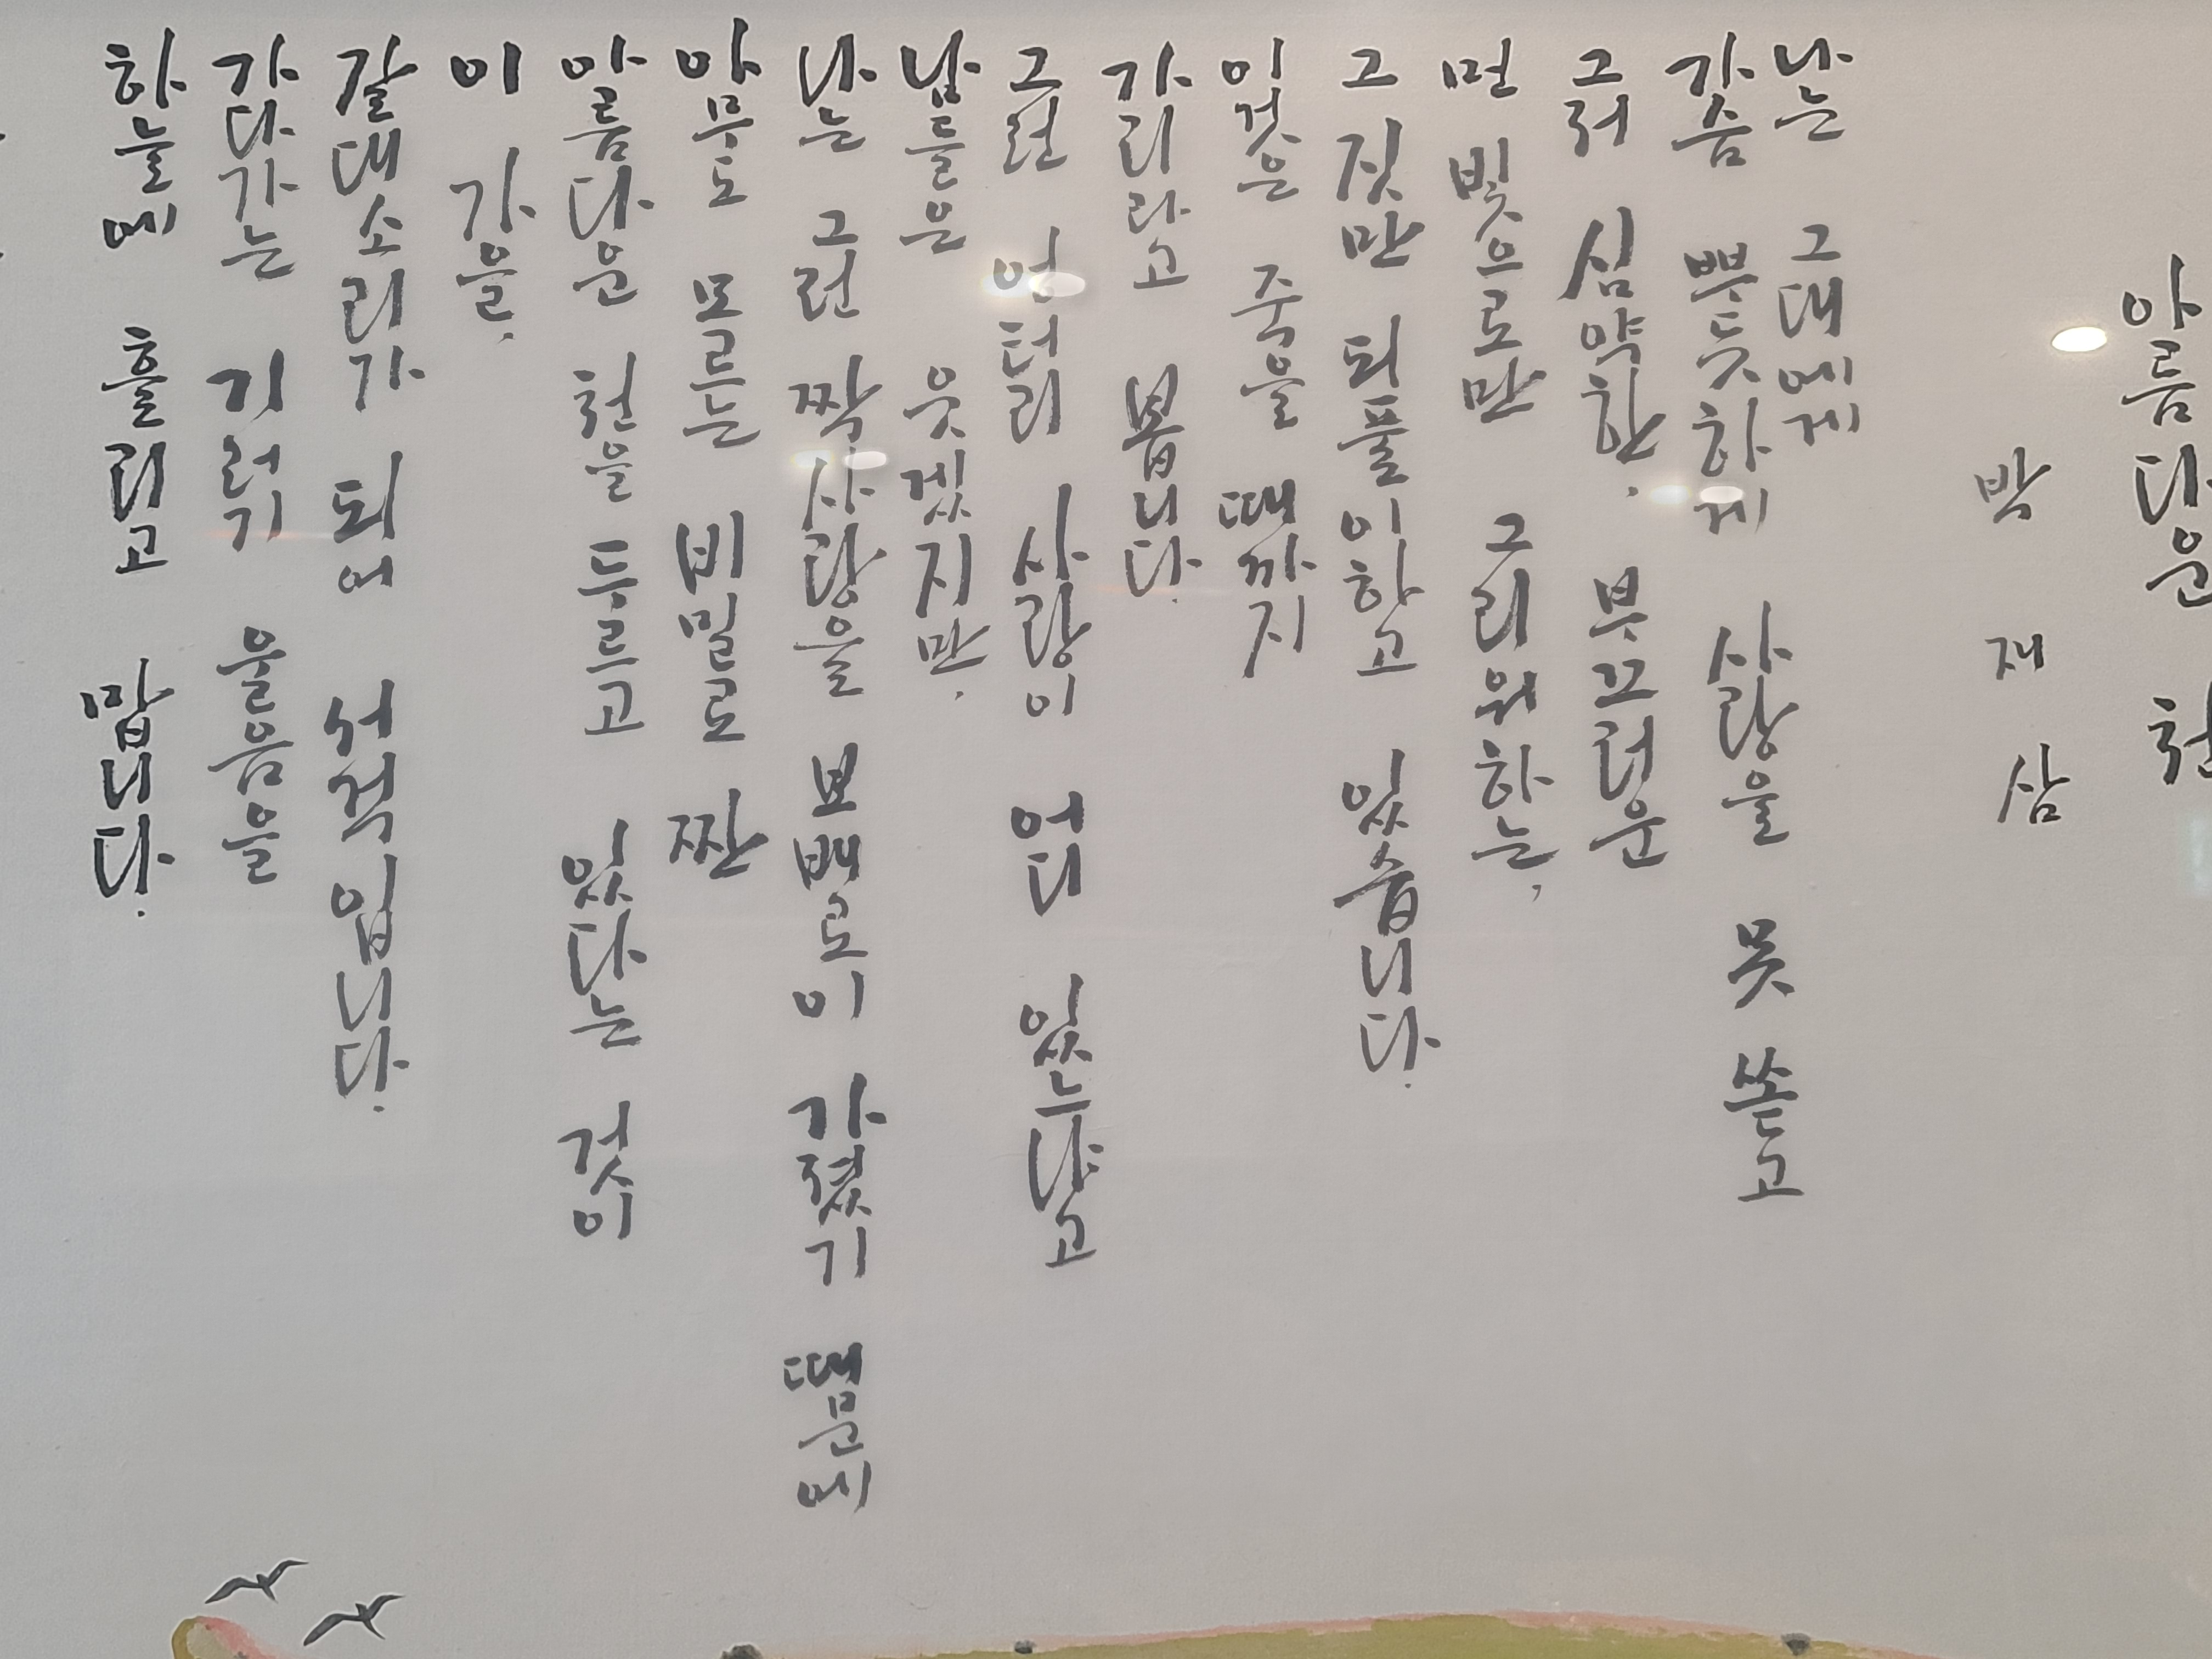 아름다운 천
박재삼
나는 그대에게
가슴 뿌듯하게 사랑을 못 쏟고
그저 심약한, 부끄러운
먼 빛으로만 그리워하는,
그 짓만 되풀이하고 있습니다.
이것은 죽을 때까지
가리라고 봅니다.
그런 엉터리 사랑이 어디 있느냐고
남들은 웃겠지만,
나는 그런 짝사랑을 보배로이 가졌기 때문에
아무도 모르는 비밀로 짠
아름다운 천을 두르고 있다는 것이
이 가을,
갈대소리가 되어 서걱입니다.
가다가는 기러기 울음을
하늘에 흘리고 맙니다.